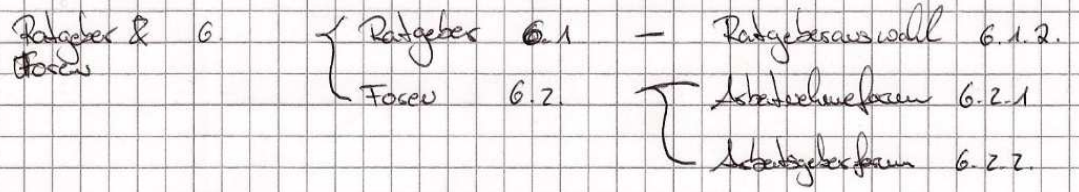 Ratgeber & 6. Ratgeber 6.1 – Ratgeberauswahl 6.1.2.
Foren Foren 6.2. Arbeitnehmerforum 6.2.1
Arbeitgeberforum 6.2.2.